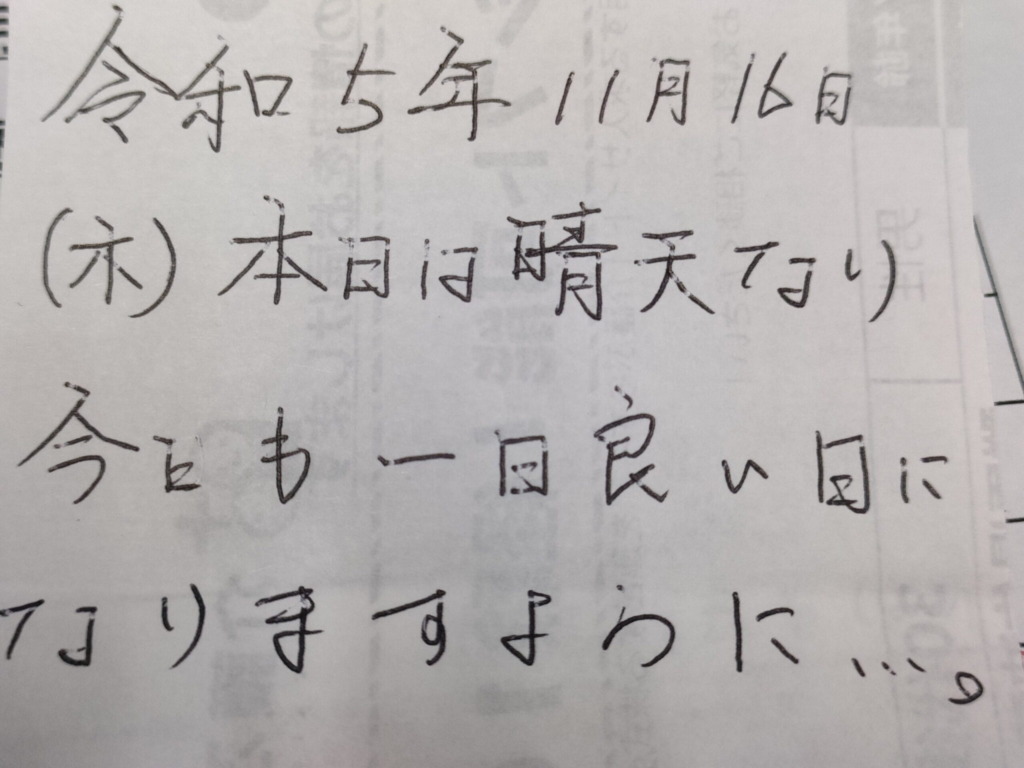 令和5年11月16日
(木)本日は晴天なり
今日も一日良い日に
なりますように…。